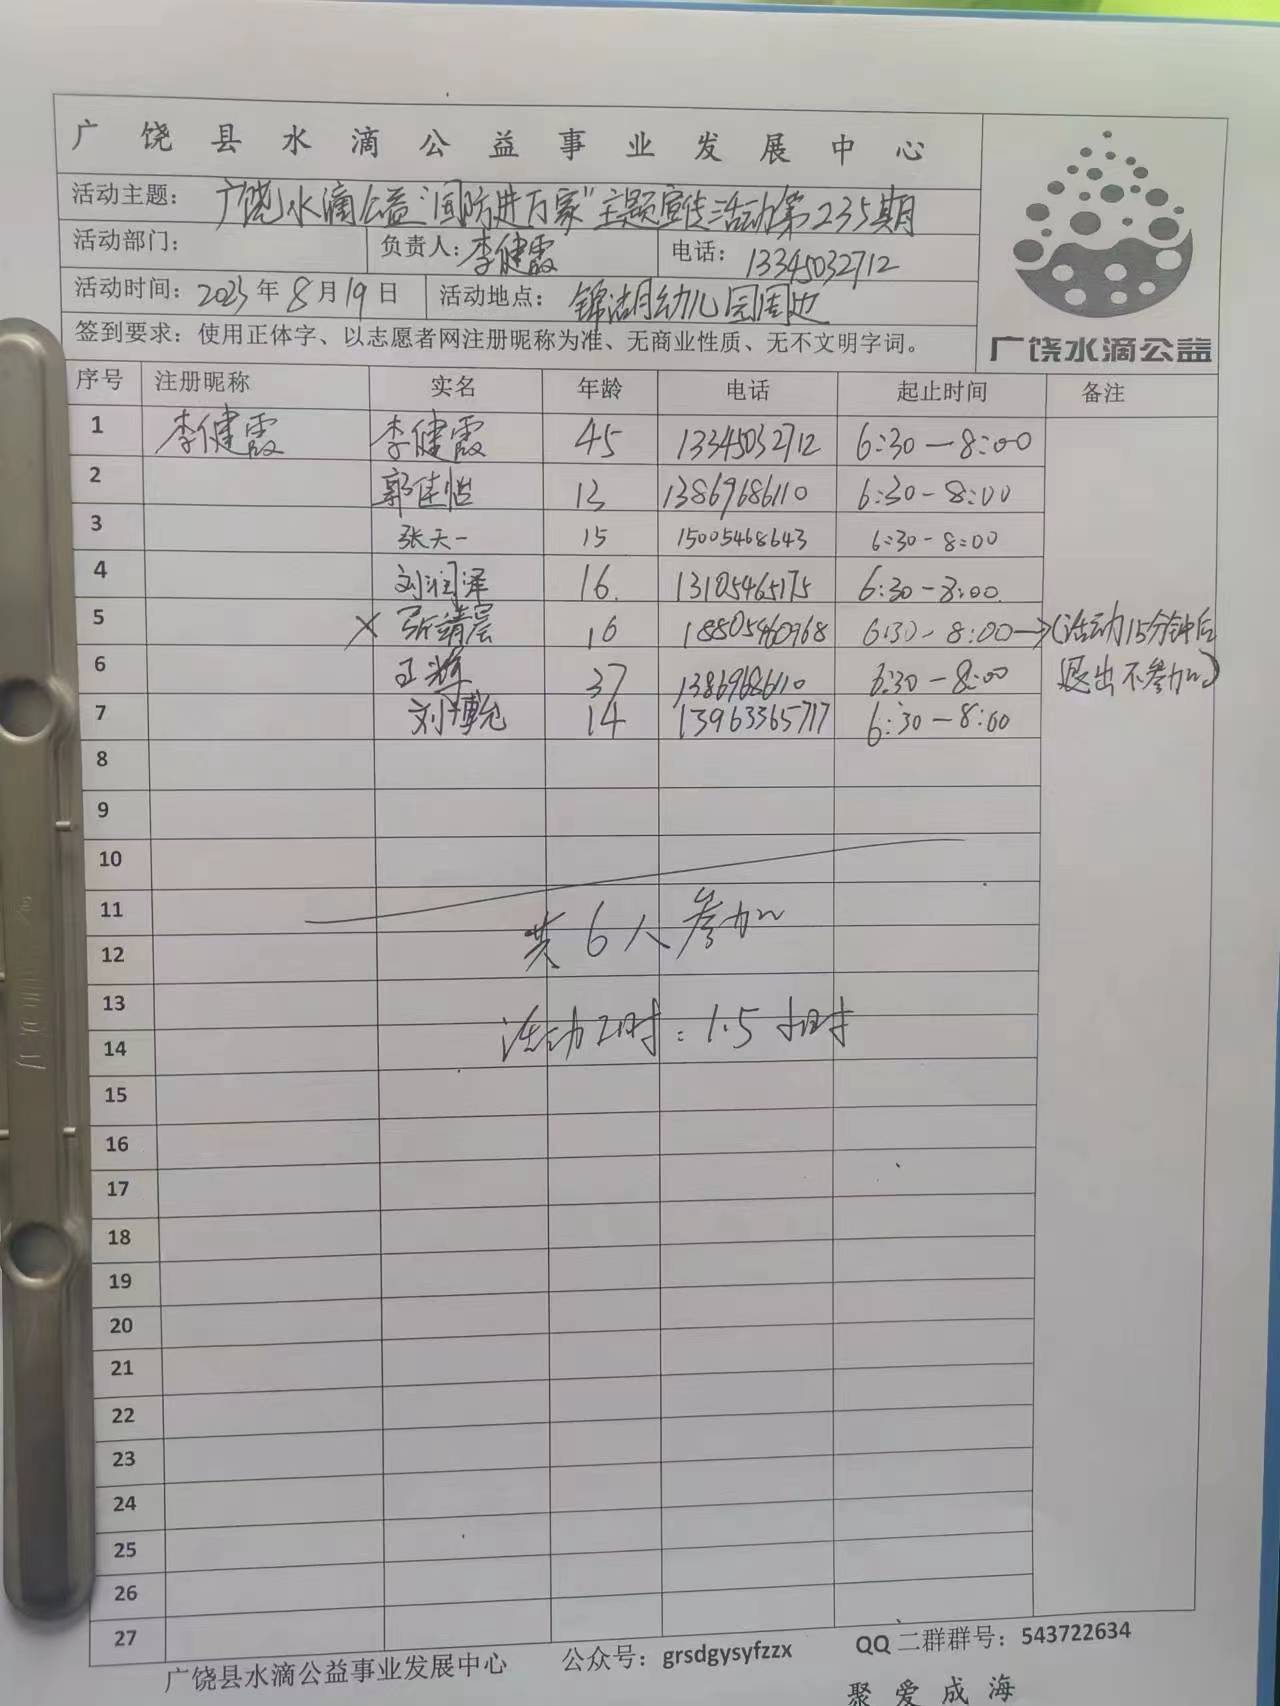 广饶县水滴公益事业发展中心
活动主题：广饶水滴公益“国防进万家”主题宣传活动第235期
活动部门： 负责人：李健霞 电话：13345032712
活动时间：2023年8月19日 活动地点：锦湖幼儿园周边
签到要求：使用正体字、以志愿者网注册昵称为准、无商业性质、无不文明字词。
广饶水滴公益
序号 注册昵称 实名 年龄 电话 起止时间 备注
1 李健霞 李健霞 45 13345032712 6:30-8:00
2 郭佳恺 13 13869686110 6:30-8:00
3 张天一 15 15005468643 6:30-8:00
4 刘润泽 16. 13105465175 6:30-8:00.
5 × 张靖晨 16 18805460968 6:30-8:00→(活动15分钟后
退出不参加)
6 37 13869686110 6:30-8:00
7 刘博允 14 13963365717 6:30-8:00
8
9
10
11
共6人参加
12
13
活动工时：1.5小时
14
15
16
17
18
19
20
21
22
23
24
25
26
27
广饶县水滴公益事业发展中心 公众号：grsdgysyfzzx QQ二群群号：543722634
聚爱成海